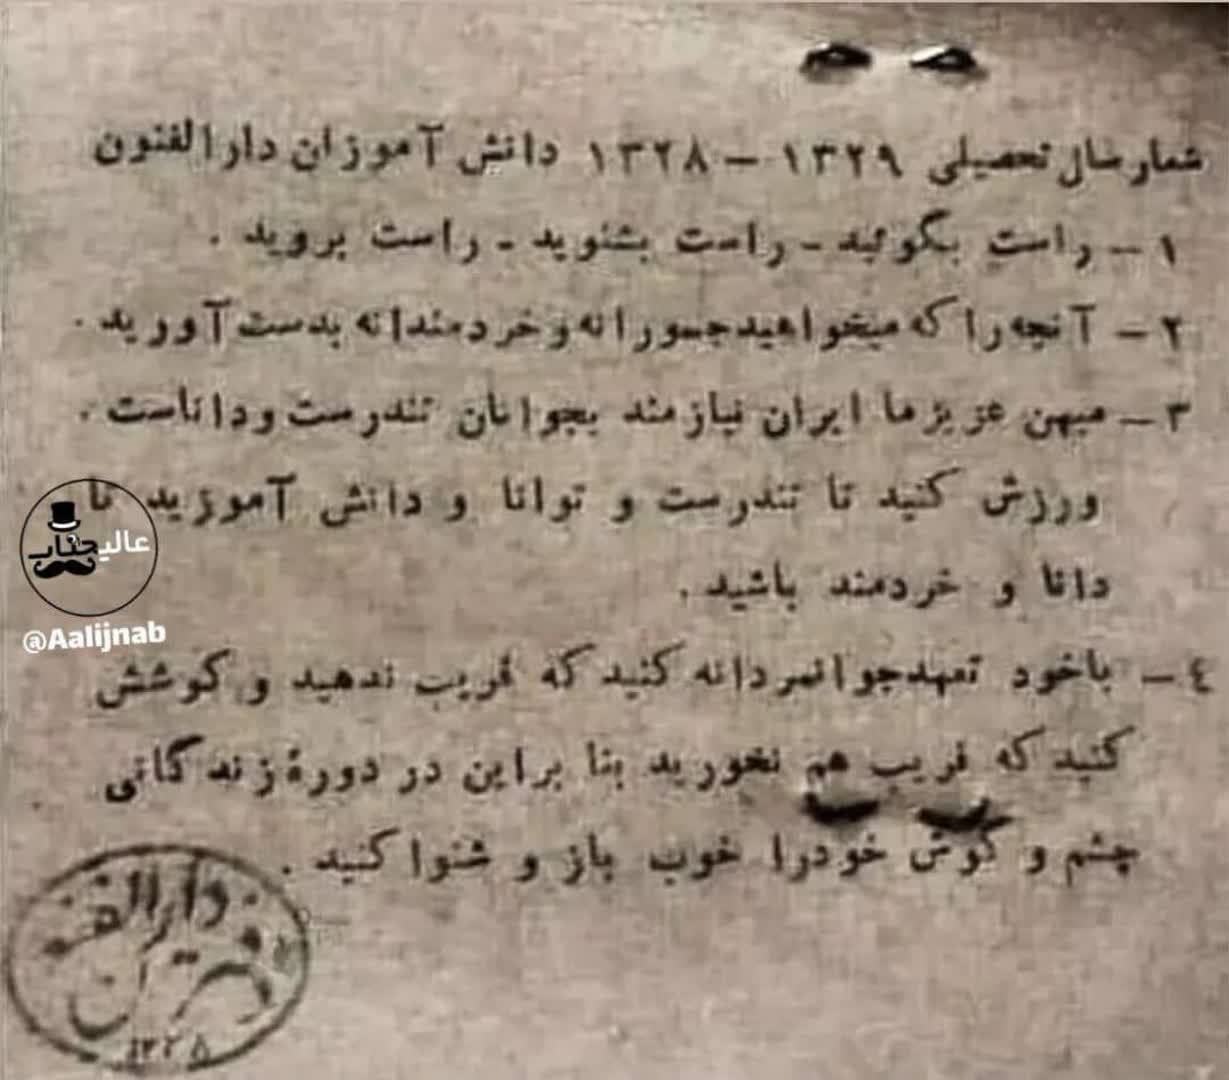 شمار سال تحصیلی ۱۳۲۹ – ۱۳۲۸ دانش آموزان دارالفنون
۱ – راست بگوئید – راست بشنوید – راست بروید .
۲ – آنچه را که میخواهید جسورانه و خردمندانه بدست آورید .
۳ – میهن عزیز ما ایران نیازمند بجوانان تندرست و داناست .
ورزش کنید تا تندرست و توانا و دانش آموزید تا
دانا و خردمند باشید .
٤ – با خود تعهد جوانمردانه کنید که فریب ندهید و کوشش
کنید که فریب هم نخورید بنا براین در دورهٔ زندگانی
چشم و گوش خودرا خوب باز و شنوا کنید .
عالیجناب
@Aalijnab
دبیرستان دارالفنون
۱۳۲۸